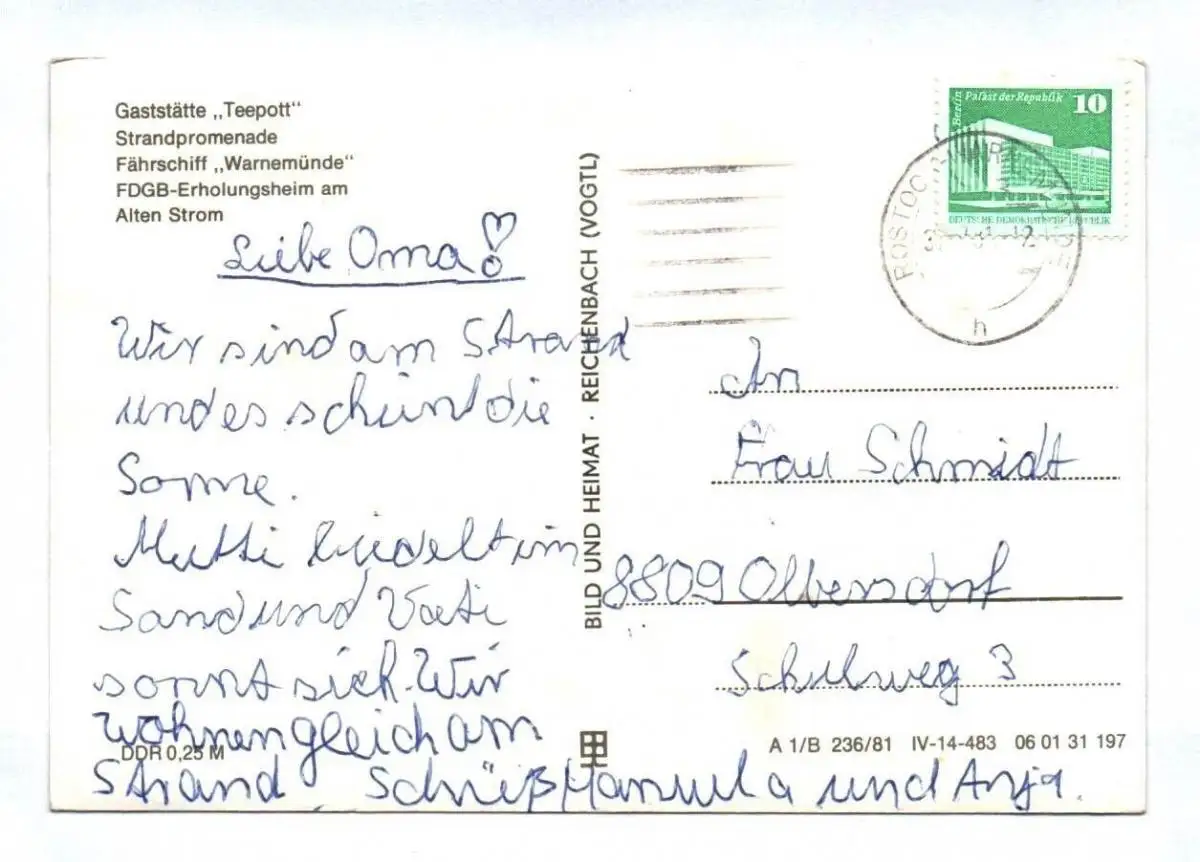 Gaststätte „Teepott“
Strandpromenade
Fährschiff „Warnemünde“
FDGB-Erholungsheim am
Alten Strom
Liebe Oma!
Wir sind am Strand
und es scheint die
Sonne.
Mutti buddelt im
Sand und Vati
sonnt sich. Wir
wohnen gleich am
Strand. Schüß Manuela und Anja.
DDR 0,25 M
BILD UND HEIMAT · REICHENBACH (VOGTL)
Berlin Palast der Republik 10
DEUTSCHE DEMOKRATISCHE REPUBLIK
ROSTOCK-WARNEMÜNDE
h
An
Frau Schmidt
8809 Olbersdorf
Schulweg 3
A 1/B 236/81 IV-14-483 06 01 31 197